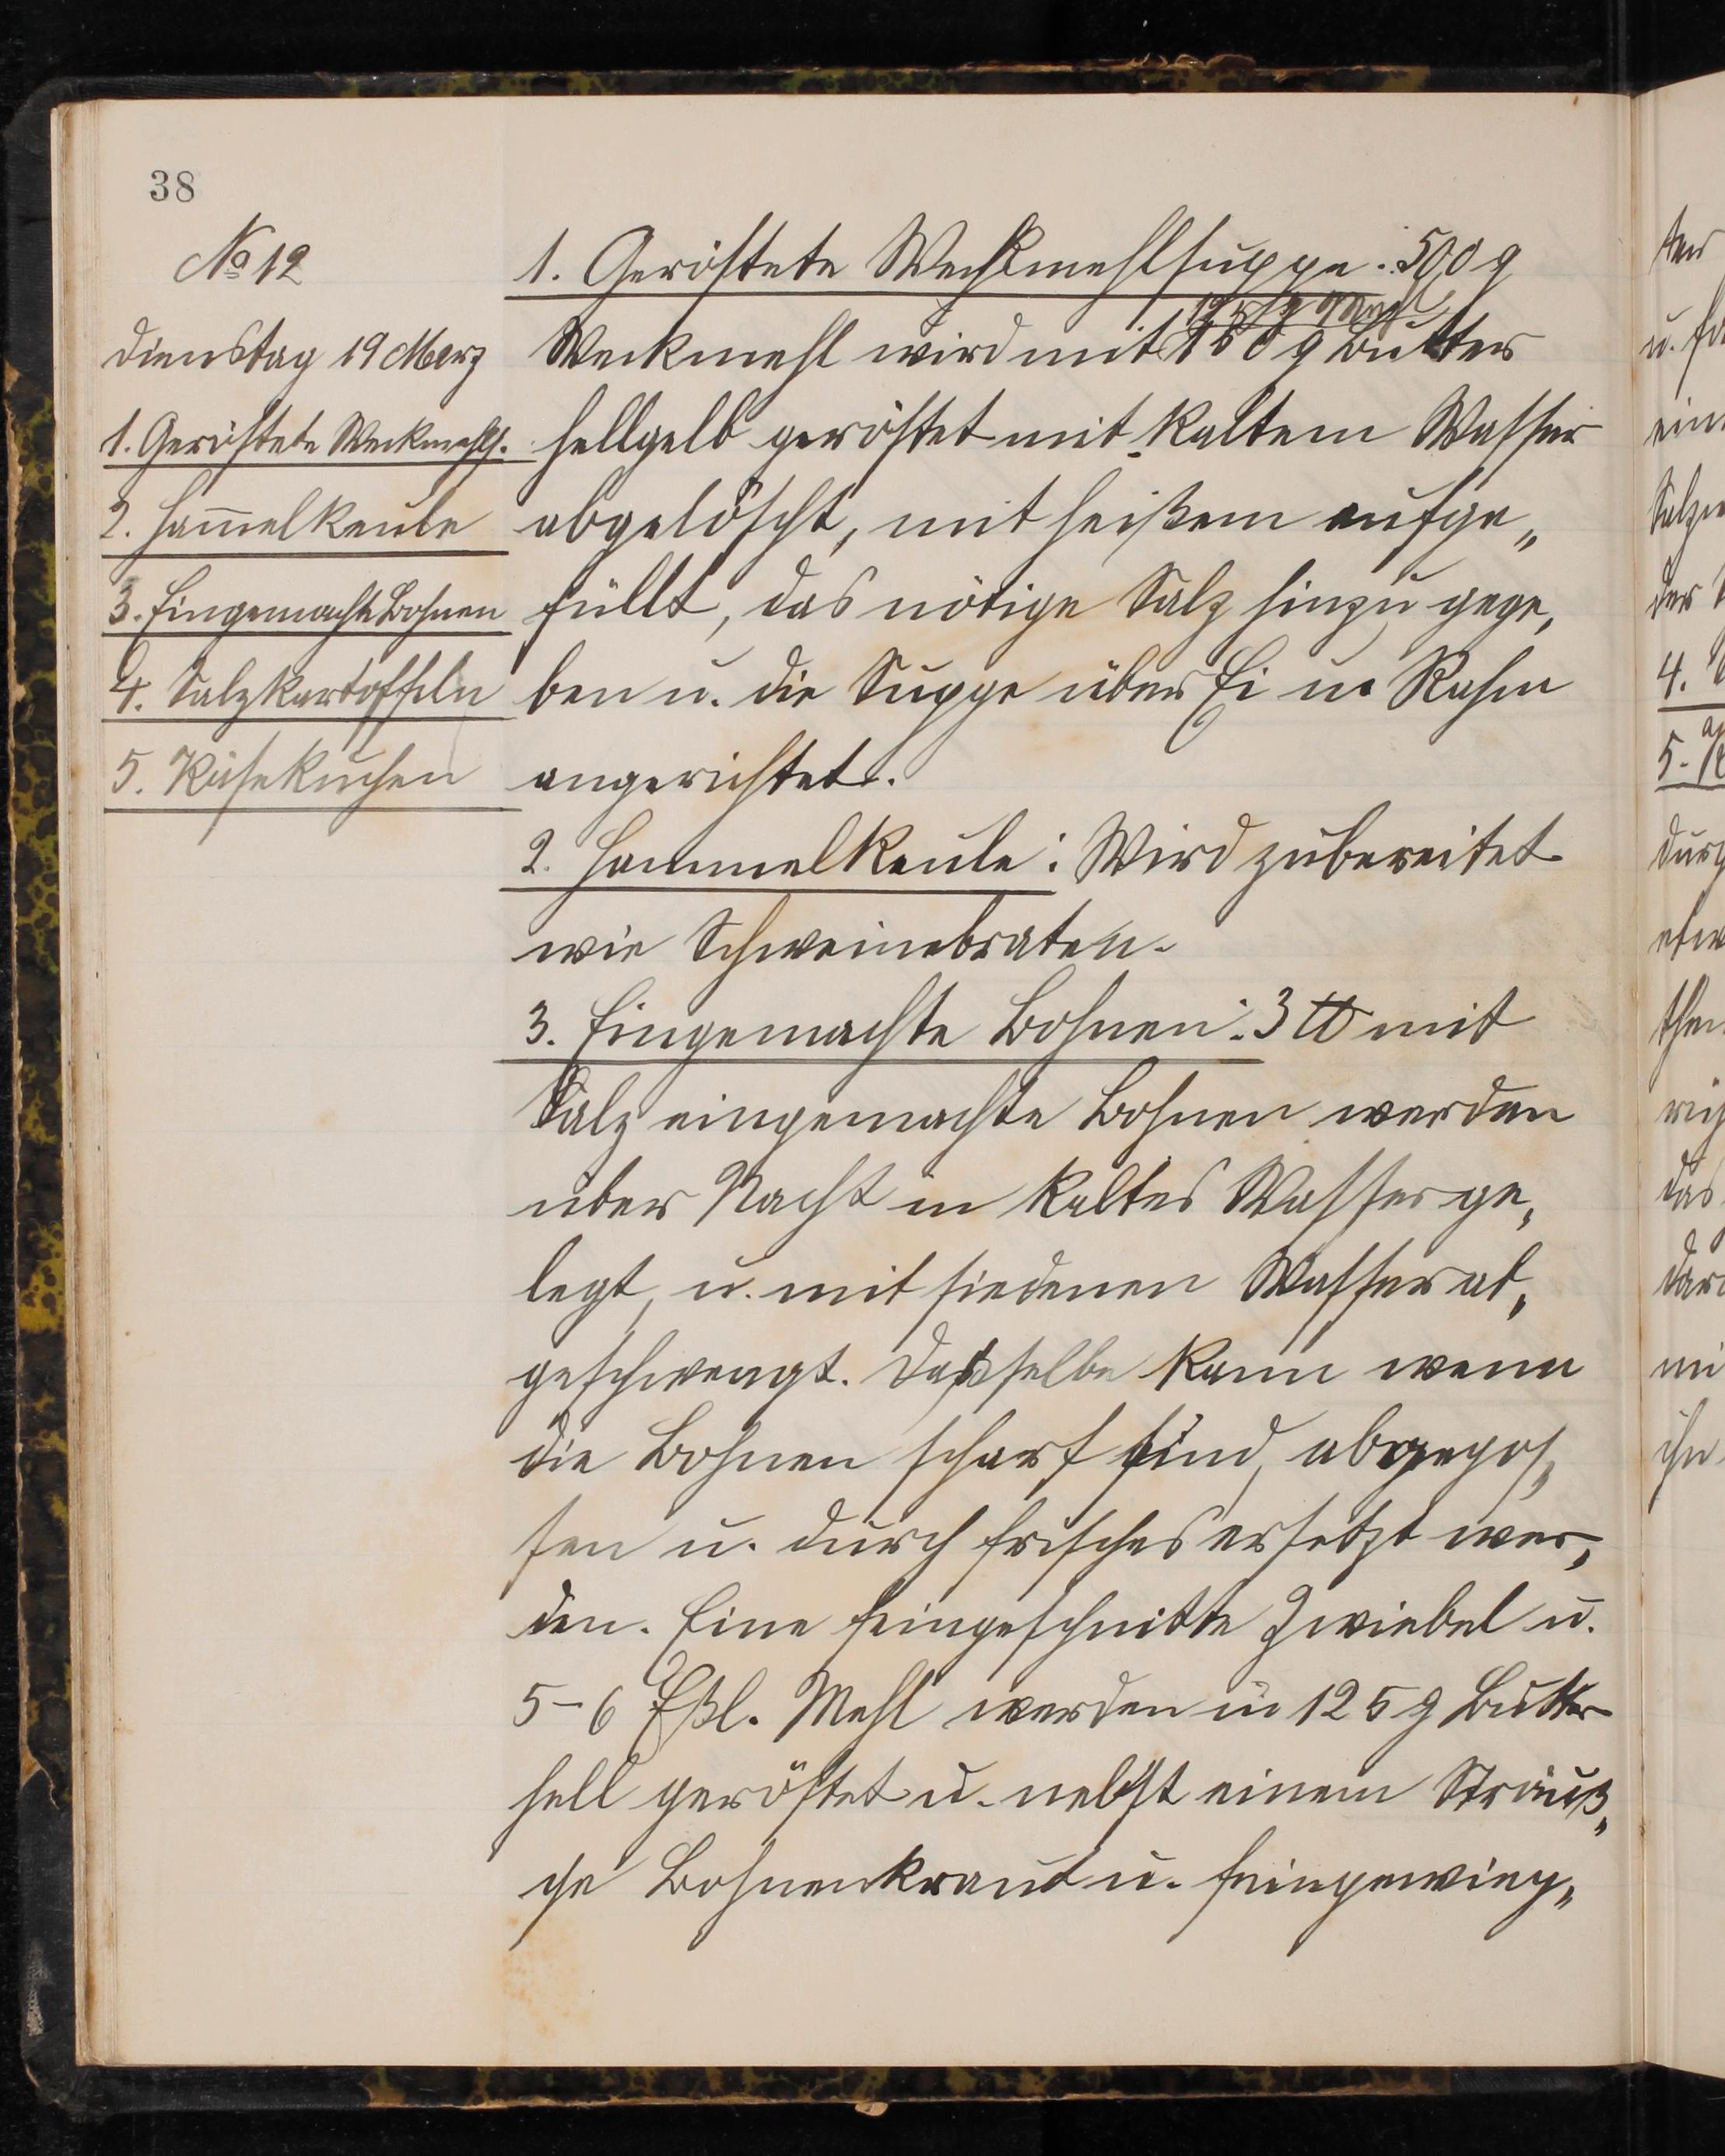 38
No 12
Dienstag 19 März
1. Geröstete Weckmehls.
2. Ham̄elkeule
3. Eingemachte Bohnen
4. Salzkartoffeln
5. Käsekuchen
1. Geröstete Weckmehlsuppe: 500 g
Mehl
Weckmehl wird mit 150 g Butter
hellgelb geröstet mit kaltem Wasser
abgelöscht, mit heißem aufge„
füllt, das nötige Salz hinzu gege,
ben u. die Suppe über Ei u. Rahm
angerichtet.
2. Hammelkeule: Wird zubereitet
wie Schweinebraten.
3. Eingemachte Bohnen: 3 ℔ mit
Salz eingemachte Bohnen werden
über Nacht in kaltes Wasser ge„
legt, u. mit siedenen Wasser ab„
geschwengt. Dasselbe kann wenn
die Bohnen scharf sind, abgegos„
sen u. durch frisches ersetzt wer„
den. Eine feingeschnitte Zwiebel u.
5-6 Eßl. Mehl werden in 125 g Butter
hell geröstet u. nebst einem Sträuß„
che Bohnenkraut u. feingewieg„
ten
4.
5.
das